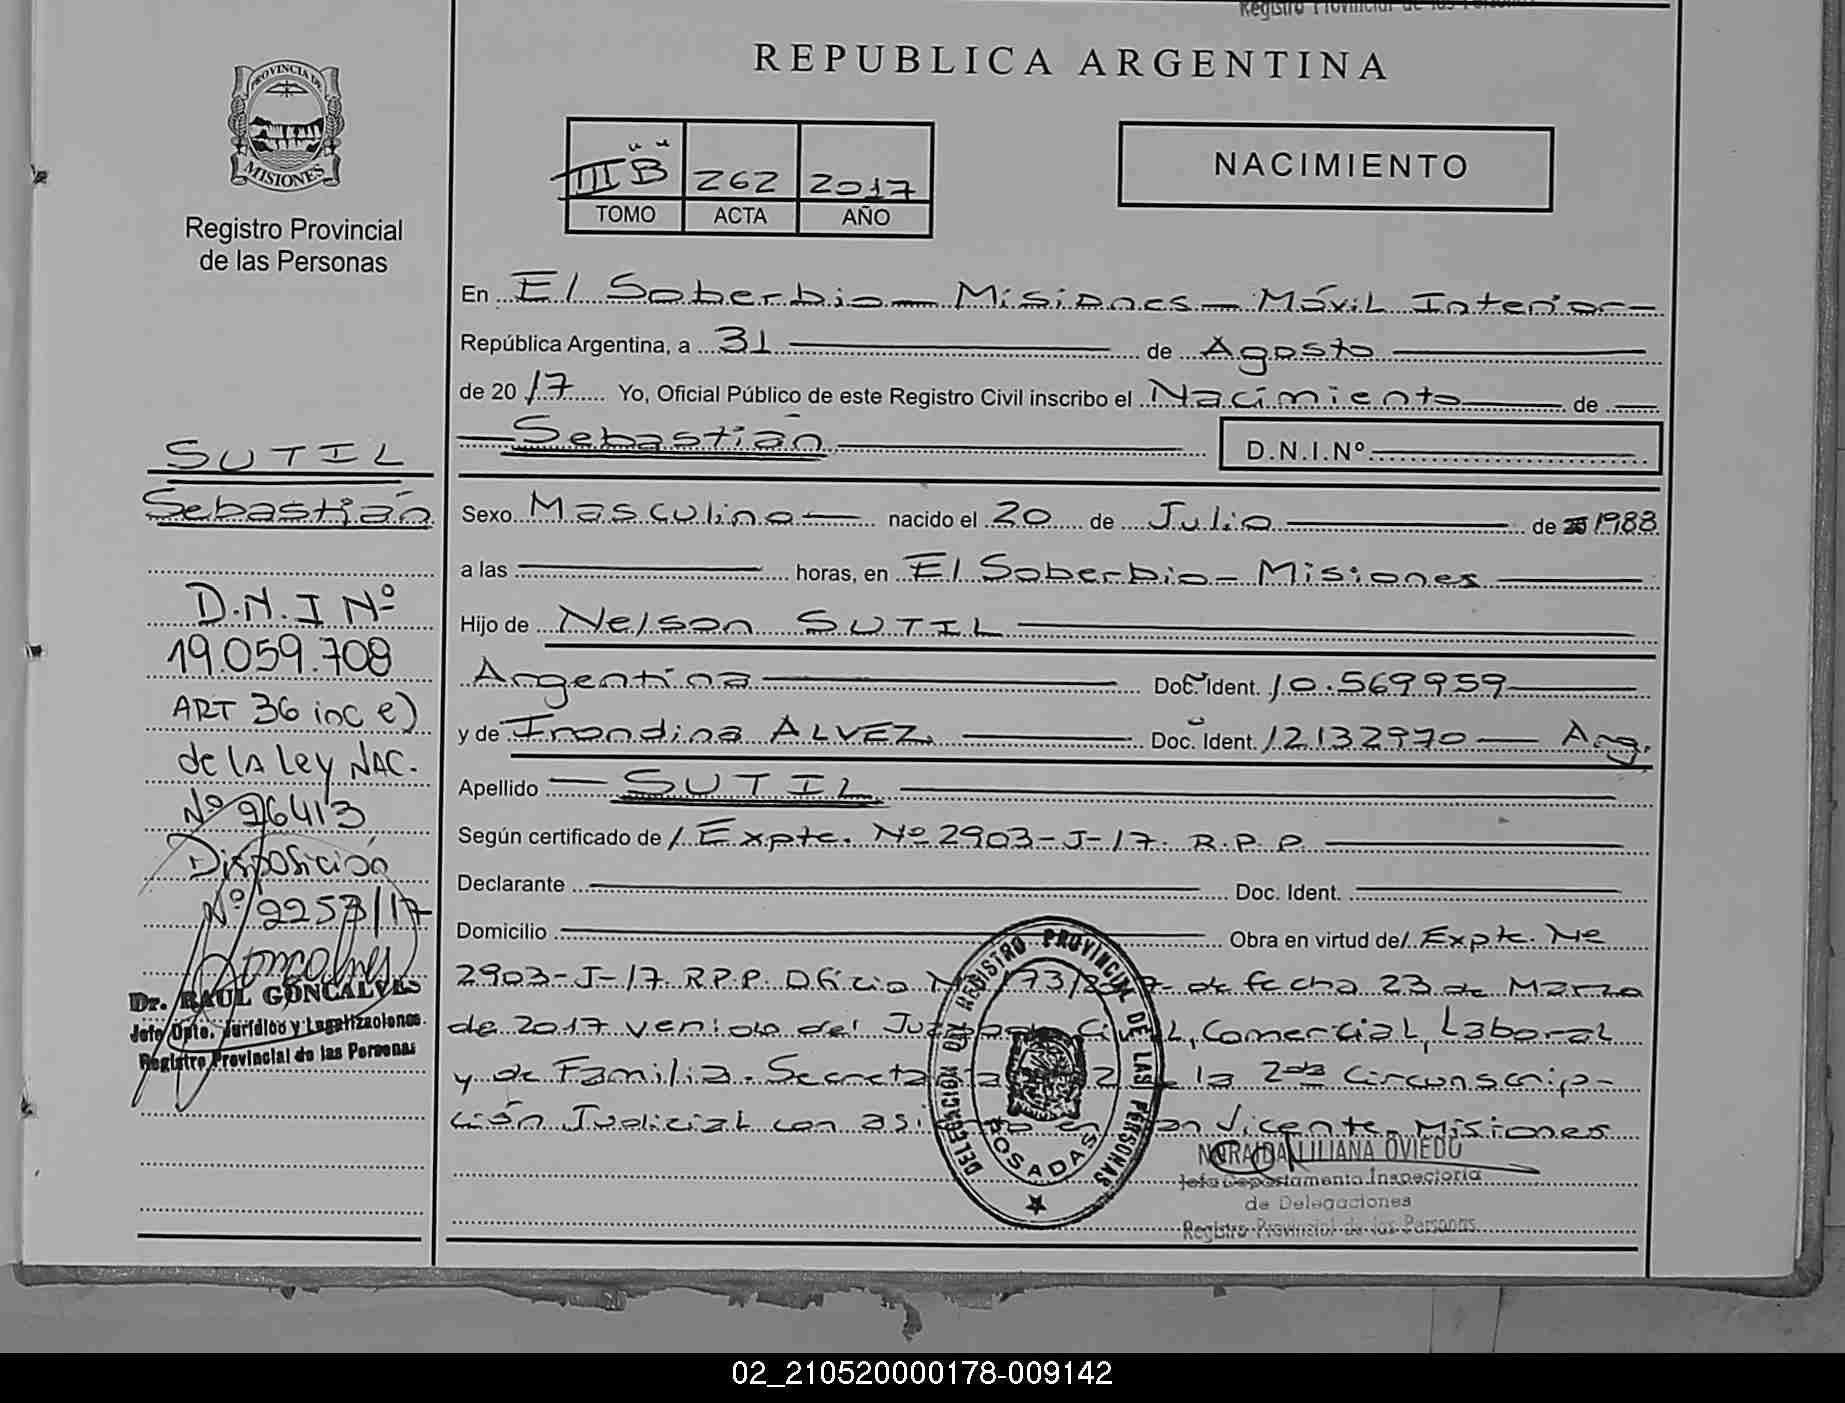 Registro Provincial de las Personas
PROVINCIA DE
MISIONES
Registro Provincial
de las Personas
REPUBLICA ARGENTINA
III "B" 262 2017
TOMO ACTA AÑO
NACIMIENTO
En El Soberbio - Misiones - Móvil Interior -
República Argentina, a 31 de Agosto
de 2017 Yo, Oficial Público de este Registro Civil inscribo el Nacimiento de
Sebastián D.N.I.Nº
Sexo Masculino nacido el 20 de Julio de 1988
a las horas, en El Soberbio - Misiones
Hijo de Nelson SUTIL
Argentina Doc. Ident. 10.569959
y de Irondina ALVEZ. Doc. Ident. 12132970 — Arg.
Apellido SUTIL
Según certificado de / Expte. Nº 2903-J-17. R.P.P
Declarante Doc. Ident.
Domicilio Obra en virtud de/. Expte. Nº
2903-J-17. R.P.P. Oficio de fecha 23 de Marzo
de 2017 venido del Juzgado Civil, Comercial, Laboral
y de Familia. Secretaría 2 de la 2da Circunscrip-
ción Judicial con asiento en San Vicente - Misiones
SUTIL
Sebastián
D.N.I Nº
19.059.708
ART 36 inc e)
de la Ley NAC.
Nº 26413
Disposición
Nº 2253/17
Goncalves
Dr. RAUL GONCALVES
Jefe Dpto. Jurídico y Legalizaciones
Registro Provincial de las Personas
DELEGACION DEL REGISTRO PROVINCIAL DE LAS PERSONAS
POSADAS
NORAIDA LILIANA OVIEDO
Jefa Departamento Inspectoría
de Delegaciones
Registro Provincial de las Personas
02_210520000178-009142